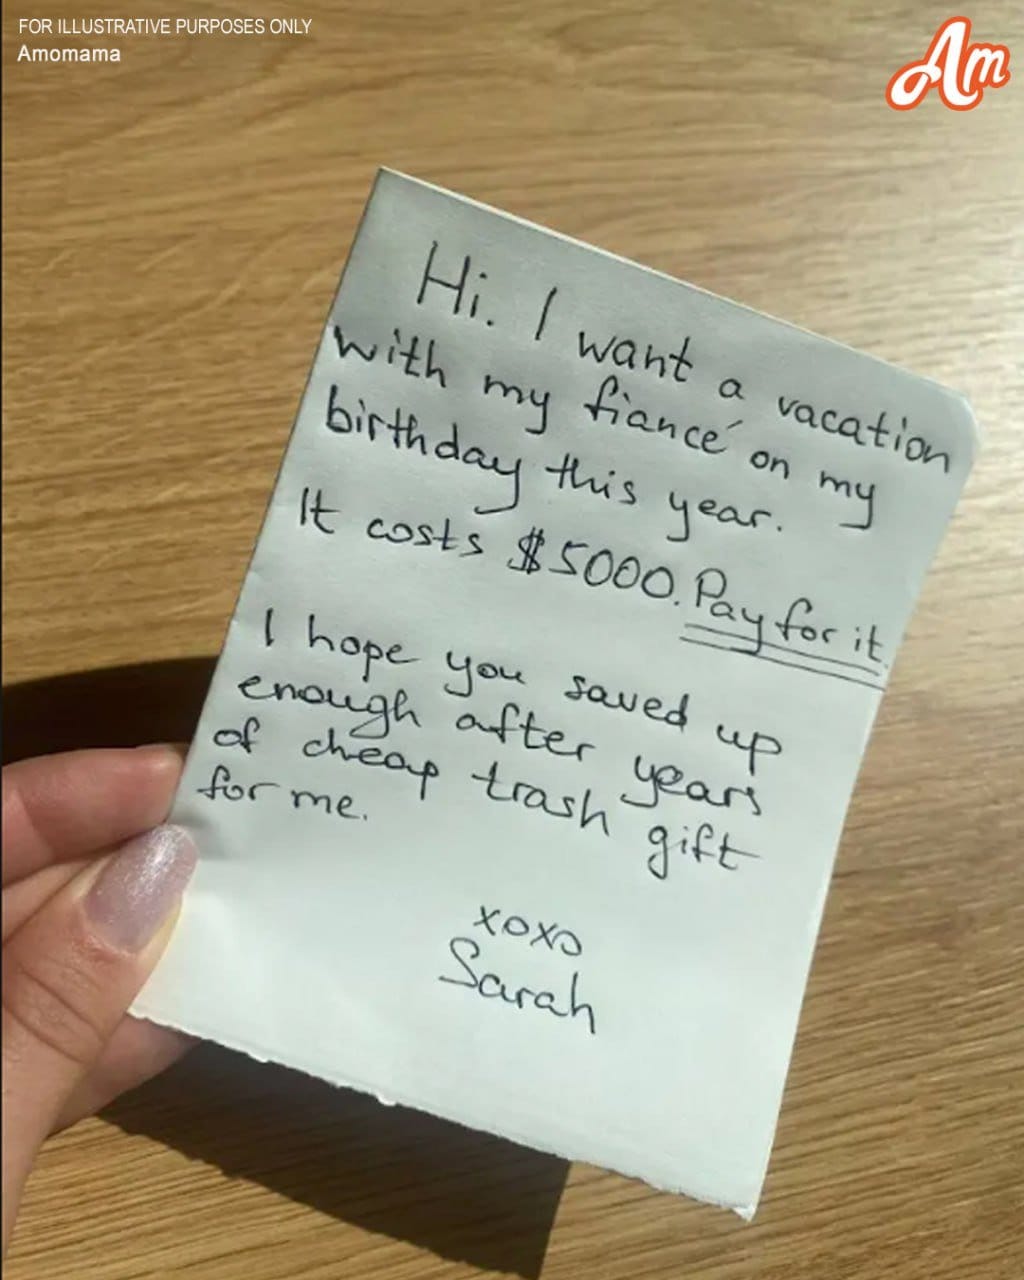 FOR ILLUSTRATIVE PURPOSES ONLY
Amomama
Am
Hi. I want a vacation
with my fiancé on my
birthday this year.
It costs $5000. Pay for it.
I hope you saved up
enough after years
of cheap trash gift
for me.
xoxo
Sarah